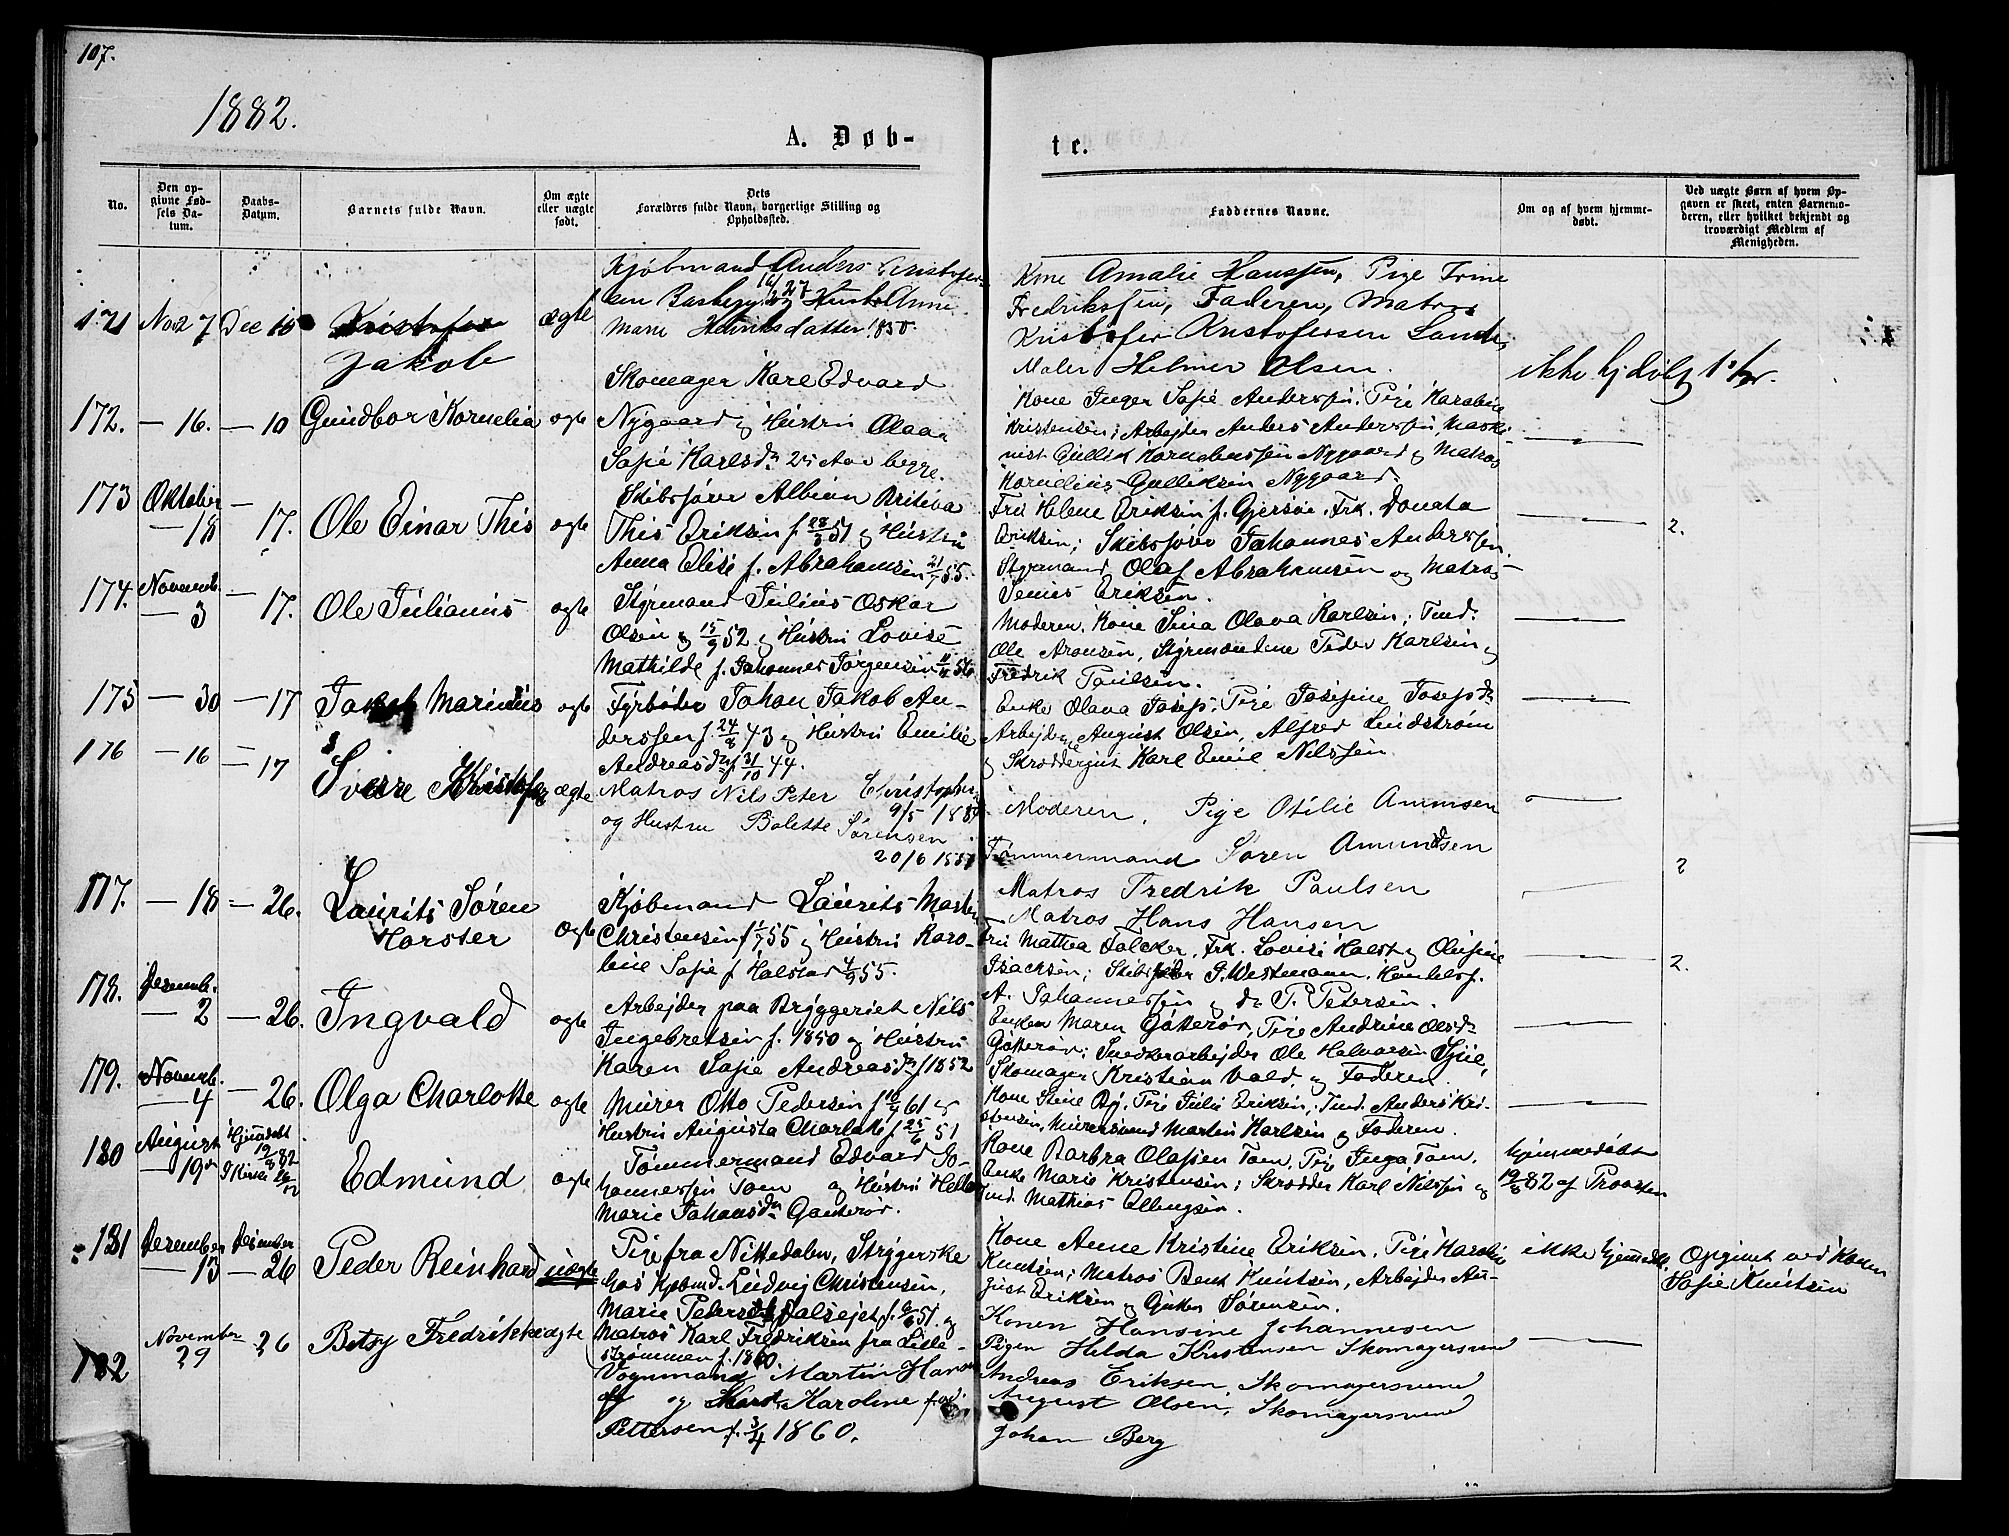 107.
1882.
A. Døb-
te.
No.
Den op-
givne Fød-
sels Da-
tum.
Daabs-
Datum.
Barnets fulde Navn.
Om ægte
eller uægte
født.
Dets
Forældres fulde Navn, borgerlige Stilling og
Opholdssted.
Faddernes Navne.
Om og af hvem hjemme-
døbt.
Ved uægte Børn af hvem Op-
gaven er skeet, enten Barnemo-
deren, eller hvilket bekjendt og
troværdigt Medlem af
Menigheden.
171 Nov 27 Dec 10 Kristofer
Jakob
ægte
Kjøbmand Anders Kristofer-
sen Hustr Anne
Marie Henriksdatter 1850.
Kone Amalie Hanssen, Pige Trine
Fredrikssen, Faderen, Matros
Kristofer Kristofersen Sande
Maler Helmer Olsen.
ikke hjdøbt
172. — 16. — 10 Gundbor Kornelia ægte
Skomager Karl Edvard
Nygaard og Hustru Olava
Sofie Karlsd. 25 Aar begge.
Kone Inger Sofie Anderssen, Pige Karoline
Kristensen; Arbejder Anders Anderssen, Maski-
nist Gullik Korneliussen Nygaard og Matros
Kornelius Gulliksen Nygaard.
173 Oktober
— 18 — 17. Ole Einar This ægte
Skibsfører Albian
This Eriksen f. 28/3 51 og Hustru
Anna Elise f. Abrahamsen 21/7 55.
Fru Helene Eriksen f. Gjersøe, Frk. Donata
Eriksen; Skibsfører Johannes Anderssen,
Styrmand Olaf Abrahamsen og Matros
Eriksen.
2.
174. Novemb.
— 3 — 17. Ole Julianus ægte
Styrmand Julius Oskar
Olsen 15/9 52 og Hustru Lovise
Mathilde f. Johannes Jørgensen 11/11 56
Moderen, Kone Sina Olava Karlsen; Tmd.
Ole Aronsen, Styrmændene Peder Karlsen og
Fredrik Paulsen.
175 — 30 — 17 Jakob Marinius ægte
Fyrbøder Johan Jakob An-
derssen f. 24/8 43 og Hustru Emilie
Andreasd. f. 31/10 44.
Enke Olava Josefs; Pige Josefine Josefsd.
Arbejderne August Olsen, Alfred Lindstrøm
og Skræddergut Karl Emil Nilssen.
176 — 16 — 17 Sverre Kristofer ægte
Matros Nils Peter Christophers
9/5
og Hustru Bolette Sørensen
20/6
Moderen, Pige Otilie Amunsen
Tømmermand Søren Amundsen
Matros Fredrik Paulsen
Matros Hans Hansen
2
177. — 18 — 26. Laurits Søren
Horster
ægte
Kjøbmand Laurits Marten
Christensen f. 1/7 55 og Hustru Karo-
line Sofie f. Holstad 4/9 55.
Fru Mathea Falcker, Frk. Lovise Holst og Olufine
Isachsen; Skibsfører G. Westmann, Handelsf.
A. Johannessen og do P. Petersen.
2.
178. Desemb.
— 2 — 26. Ingvald ægte
Arbejder paa Bryggeriet Nils
Ingebretsen f. 1850 og Hustru
Karen Sofie Andreasd. f 1852
Enken Maren Gøtterøv, Pige Andrine Olsd.
Gøtterøv; Snedkerarbejder Ole Halvorsen
Skomager Kristian Vold og Faderen.
179. Novemb.
— 4 — 26. Olga Charlotte ægte
Murer Otto Pedersen f. 61 og
Hustru Augusta Charlotte f. 25/6 51
Kone Stine Pige Julie Eriksen; Tmd. Anders Kri-
stensen, Murersvend Martin Karlsen og Faderen.
180 August
— 19. Hjemdøbt
19/8 82
i Kirken 26/12 Edmund ægte
Tømmermand Edvard Jo-
hannessen Toen og Hustru
Marie Johansd. Gouterød.
Kone Barbra Olassen Toen, Pige Inga Toen,
Enke Marie Kristensen; Skrædder Karl Nilssen og
Tmd. Mathias Ellingsen.
hjemmedøbt
19/8 82 af Provsten
181 Desember
— 13 Desember
— 26 Peder Reinhard uægte
Pige fra Nittedalen, Strygerske
hos Kjøbmd. Ludvig Christensen,
Marie Petersd. f. 51. og
Matros Karl Fredriksen fra Lille-
strømmen f. 1860.
Kone Anne Kristine Eriksen, Pige Karoline
Knutsen; Matros Bent Knutsen, Arbejder Au-
gust Eriksen og Sørensen.
ikke hjemdøbt.
Opgivet ved Konen
Sofie Knutsen
182 November
29 26 Betsy Fredrikke ægte
Vognmand Martin Hansen
og Hustr. Karoline fød
Pettersen f. 3/4 1860.
Konen Hansine Johannesen
Pigen Hilda Kristensen Skomagersvend
Andreas Eriksen, Skomagersvend
August Olsen, Skomagersvend
Johan Berg